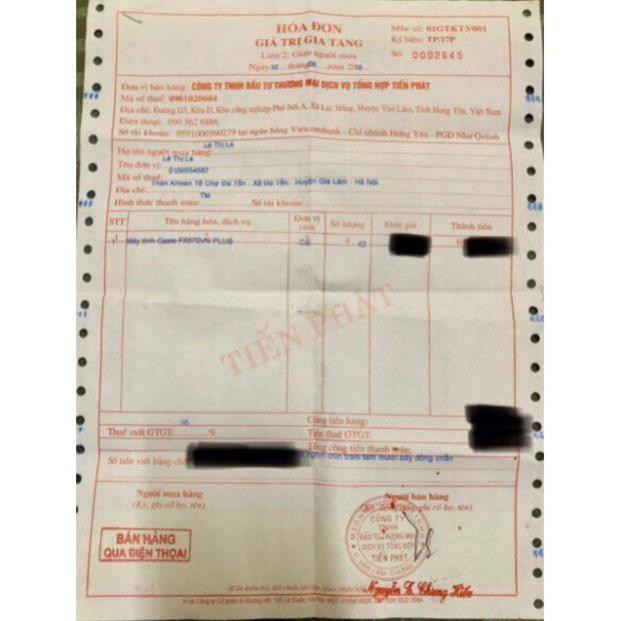 HÓA ĐƠN
GIÁ TRỊ GIA TĂNG
Liên 2: Giao người mua
Ngày tháng năm
Mẫu số: 01GTKT3/001
Ký hiệu: TP/17P
Số: 0002645
Đơn vị bán hàng: CÔNG TY TNHH ĐẦU TƯ THƯƠNG MẠI DỊCH VỤ TỔNG HỢP TIẾN PHÁT
Mã số thuế: 0901020604
Địa chỉ: Đường D5, Khu D, Khu công nghiệp Phố Nối A, Xã Lạc Hồng, Huyện Văn Lâm, Tỉnh Hưng Yên, Việt Nam
Điện thoại: 090 362 6886
Số tài khoản: 0591000360279 tại ngân hàng Vietcombank - Chi nhánh Hưng Yên - PGD Như Quỳnh
Họ tên người mua hàng: Lê Thị Lá
Tên đơn vị: Lê Thị Lá
Mã số thuế: 0100554567
Địa chỉ: Thôn Khoan Tế Chợ Gia Tốn - Xã Gia Tốn - Huyện Gia Lâm - Hà Nội.
Hình thức thanh toán: TM Số tài khoản:
STT Tên hàng hóa, dịch vụ Đơn vị tính Số lượng Đơn giá Thành tiền
1 2 3 4
1 Máy tính Casio FX570VN PLUS Cái 42
TIẾN PHÁT
Cộng tiền hàng:
Thuế suất GTGT: 10 % Tiền thuế GTGT:
Tổng cộng tiền thanh toán:
Số tiền viết bằng chữ: trăm tám mươi bảy đồng chẵn
Người mua hàng
(Ký, ghi rõ họ, tên)
Người bán hàng
BÁN HÀNG
QUA ĐIỆN THOẠI
CÔNG TY
TNHH
ĐẦU TƯ THƯƠNG MẠI
DỊCH VỤ TỔNG HỢP
TIẾN PHÁT
H. VĂN LÂM